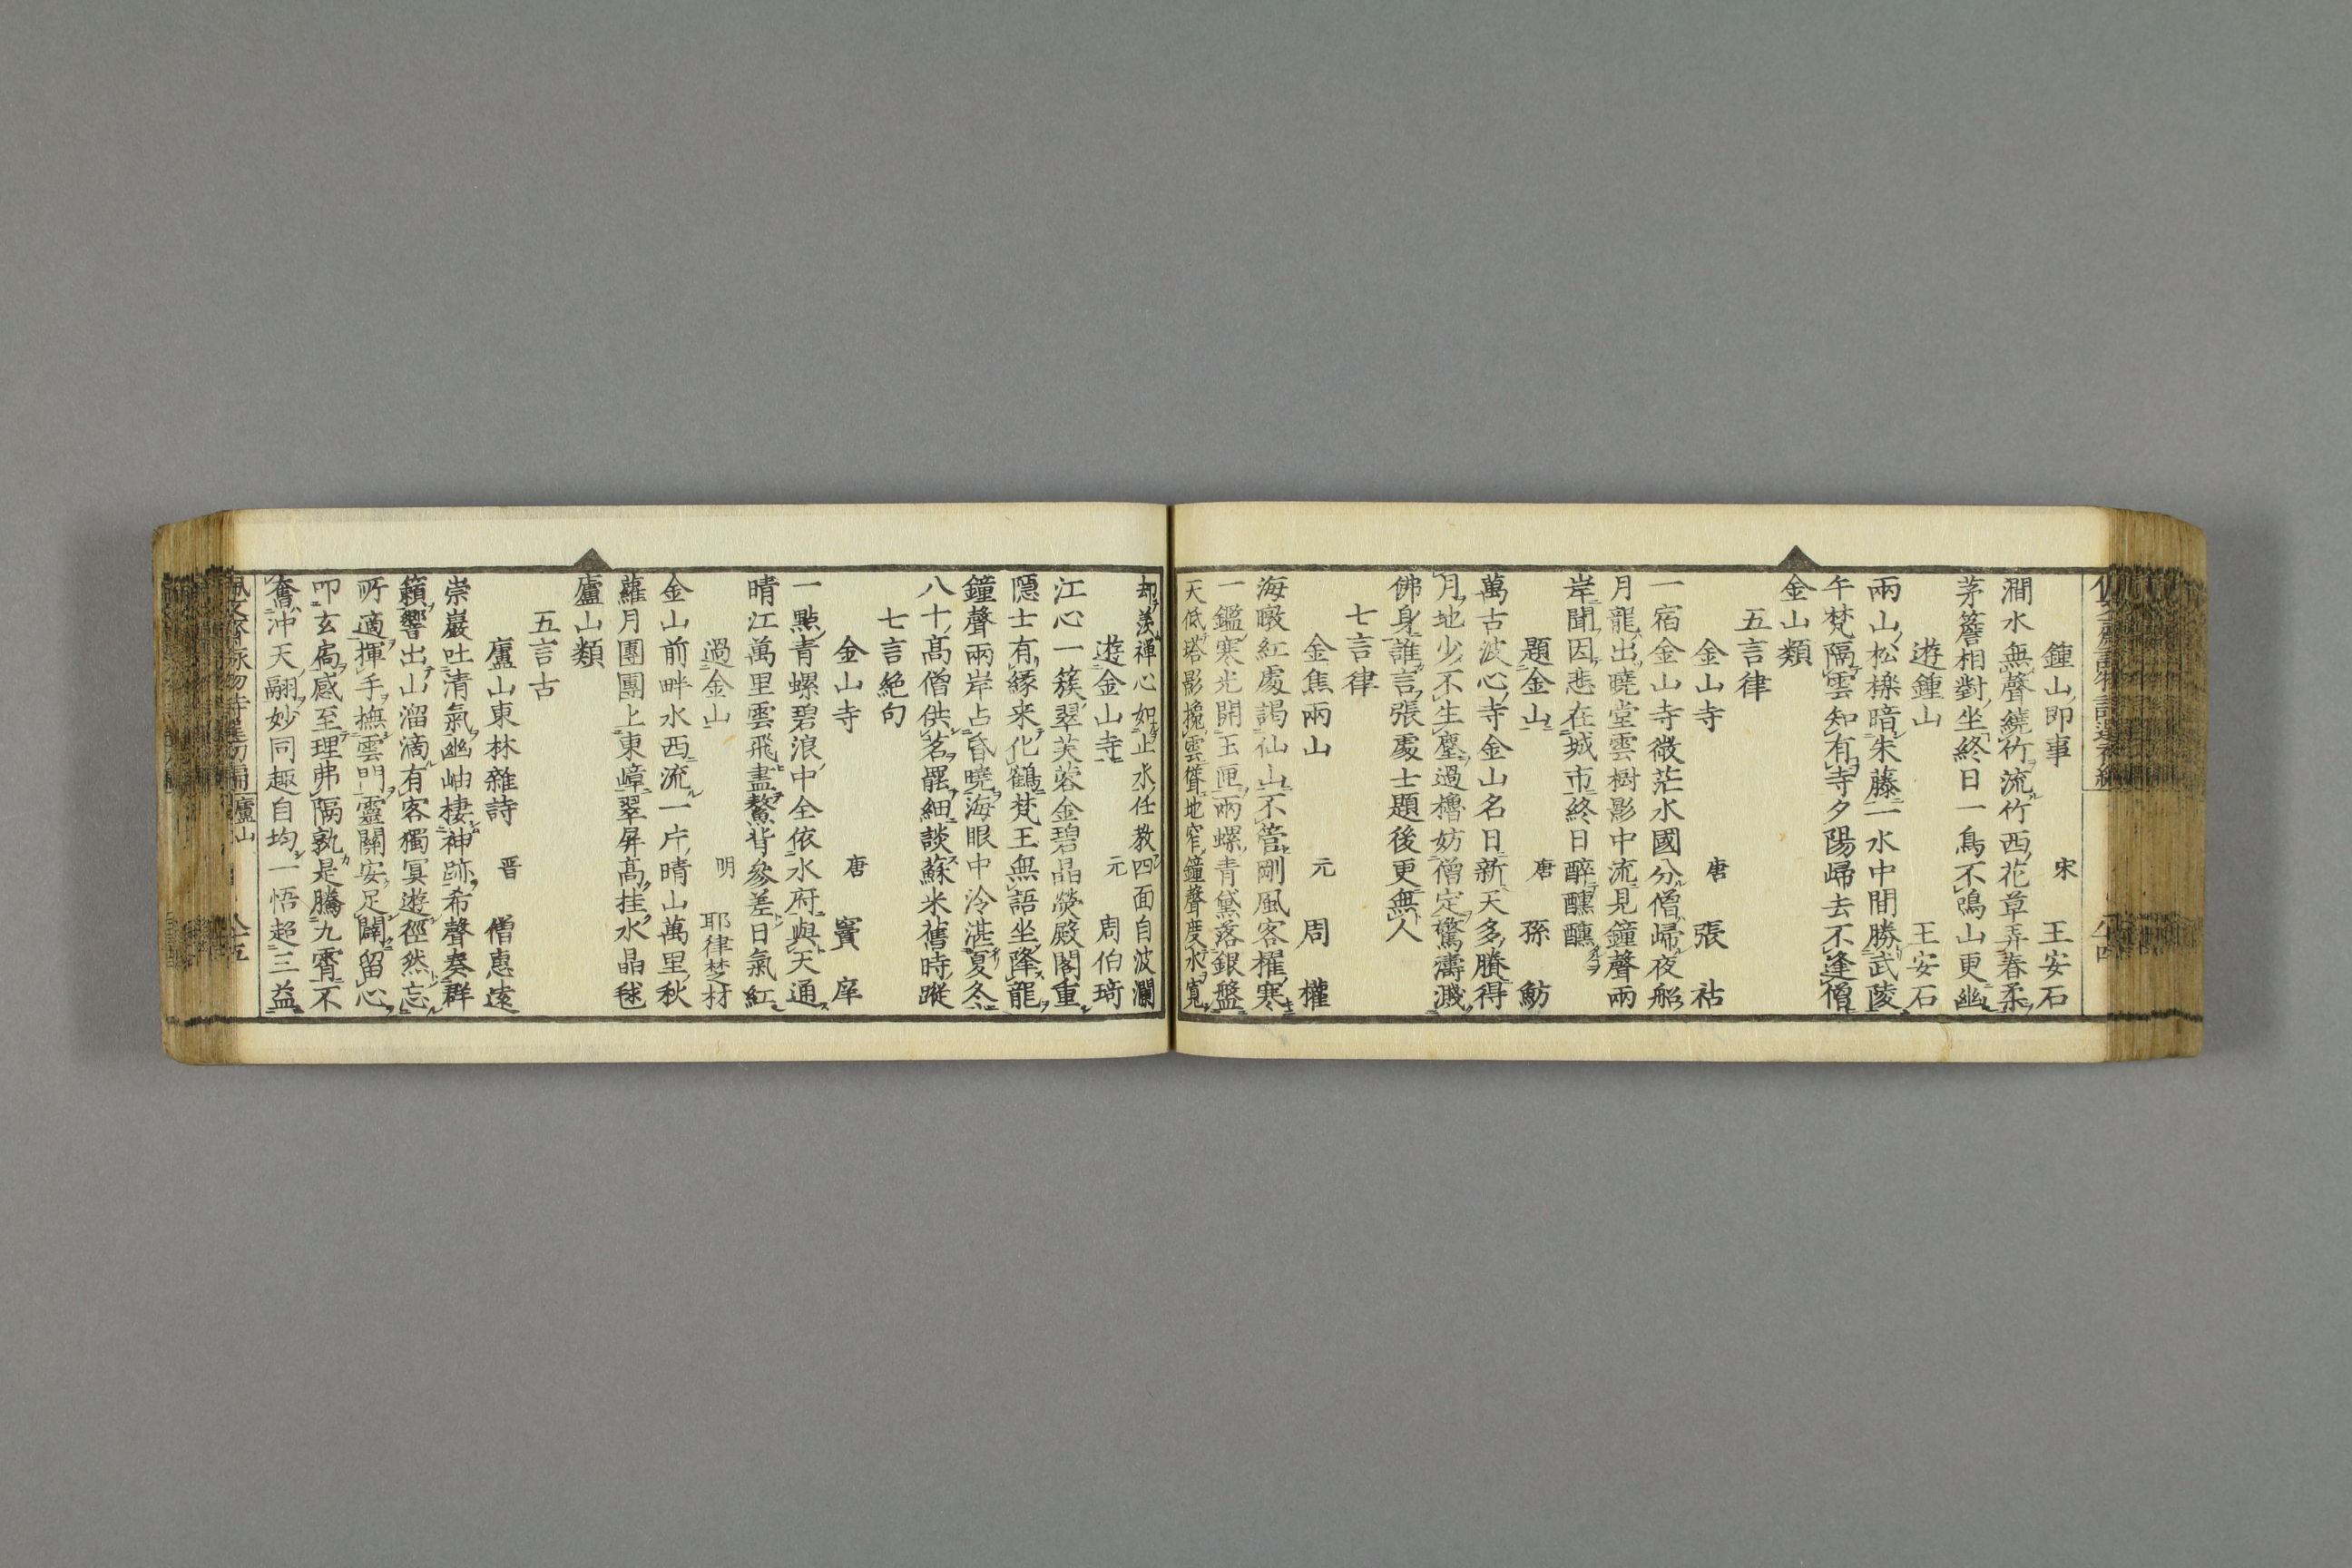 鍾山即事 宋 王安石
澗水無聲繞竹流竹西花草弄春柔
茅簷相對坐終日一鳥不鳴山更幽
遊鍾山 王安石
兩山松櫟暗朱藤一水中間勝武陵
午梵隔雲知有寺夕陽歸去不逢僧
金山類
五言律
金山寺 唐 張祜
一宿金山寺微茫水國分僧歸夜船
月龍出曉堂雲樹影中流見鐘聲兩
岸聞因悲在城市終日醉醺醺
題金山 唐 孫魴
萬古波心寺金山名日新天多賸得
月地少不生塵過櫓妨僧定驚濤濺
佛身誰言張處士題後更無人
七言律
金焦兩山 元 周權
海暾紅處謁仙山不管剛風客櫂寒
一鑑寒光開玉匣兩螺青黛落銀盤
天低塔影攙雲聳地窄鐘聲度水寬
却羨禪心如止水任教四面自波瀾
遊金山寺 元 周伯琦
江心一簇翠芙蓉金碧晶熒殿閣重
隱士有緣来化鶴梵王無語坐降龍
鐘聲兩岸占昏曉海眼中泠湛夏冬
八十高僧供茗罷細談蘇米舊時蹤
七言絶句
金山寺 唐 竇庠
一點青螺碧浪中全依水府與天通
晴江萬里雲飛盡鰲背參差日氣紅
過金山 明 耶律楚材
金山前畔水西流一片晴山萬里秋
蘿月團團上東嶂翠屏高挂水晶毬
廬山類
五言古
廬山東林雜詩 晋 僧惠遠
崇巖吐清氣幽岫棲神跡希聲奏群
籟響出山溜滴有客獨冥遊徑然忘
所適揮手撫雲門靈關安足闢留心
叩玄扃感至理弗隔孰是騰九霄不
奮沖天翮妙同趣自均一悟超三益
廬山